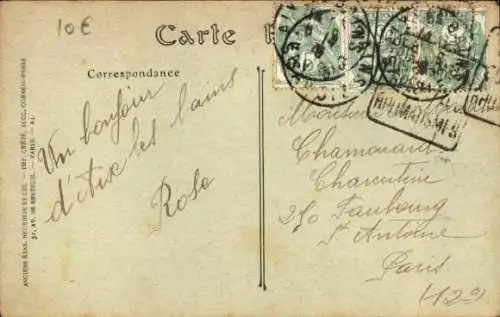 10€
Carte
Correspondance
Un bonjour
d'Aix les bains
Rose
Monsieur
Chamouant
Charentine
250 Faubourg
St Antoine
Paris
(12e)
RHUMATISMES
ANCIENS ÉTAB. NEURDEIN ET CIE. — IMP. CRÉTÉ, SUCC. CORBEIL-PARIS
52, AV. DE BRETEUIL. — PARIS.